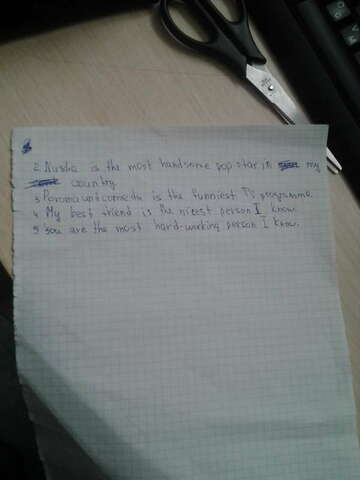 2 Nusha is the most handsome pop star in my
country.
3 Paramauntcomedu is the funniest TV programme.
4 My best friend is the nicest person I know.
5 you are the most hard-working person I know.